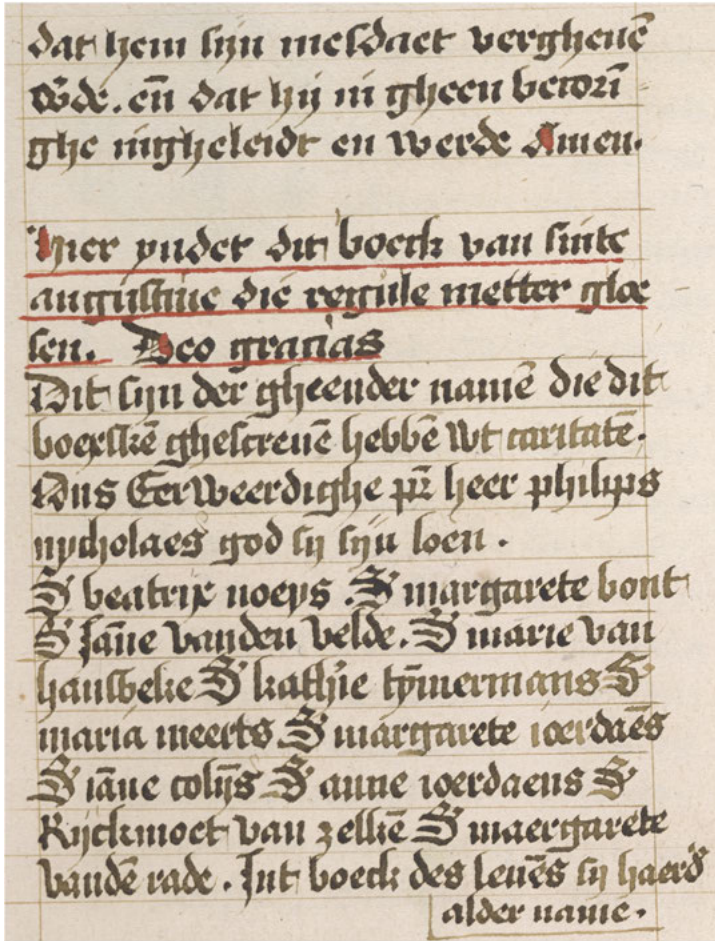 dat hem sijn mesdaet vergheuē
wōde. eñ dat hij ni gheen becori
ghe nigheleidt en werde Amen.
Hier yndet dit boeck van sinte
augustine die regule metter gloe
sen. Deo gracias
Dit sijn der gheender namē die dit
boexskē ghescreuē hebbē wt caritatē.
Ons Eerweerdighe pr̄ heer philips
nycholaes god sij sijn loen.
S beatrix noeys. S margarete bont
S Jāne vanden velde. S marie van
hausbeke S kathīe tȳmermans S
maria meerts S margarete ioerdaēs
S iāne colijs S anne ioerdaens S
Rijckmoet van zellkē S maergarete
vandē rade. Int boeck des leuēs sij haerd̕
alder name.